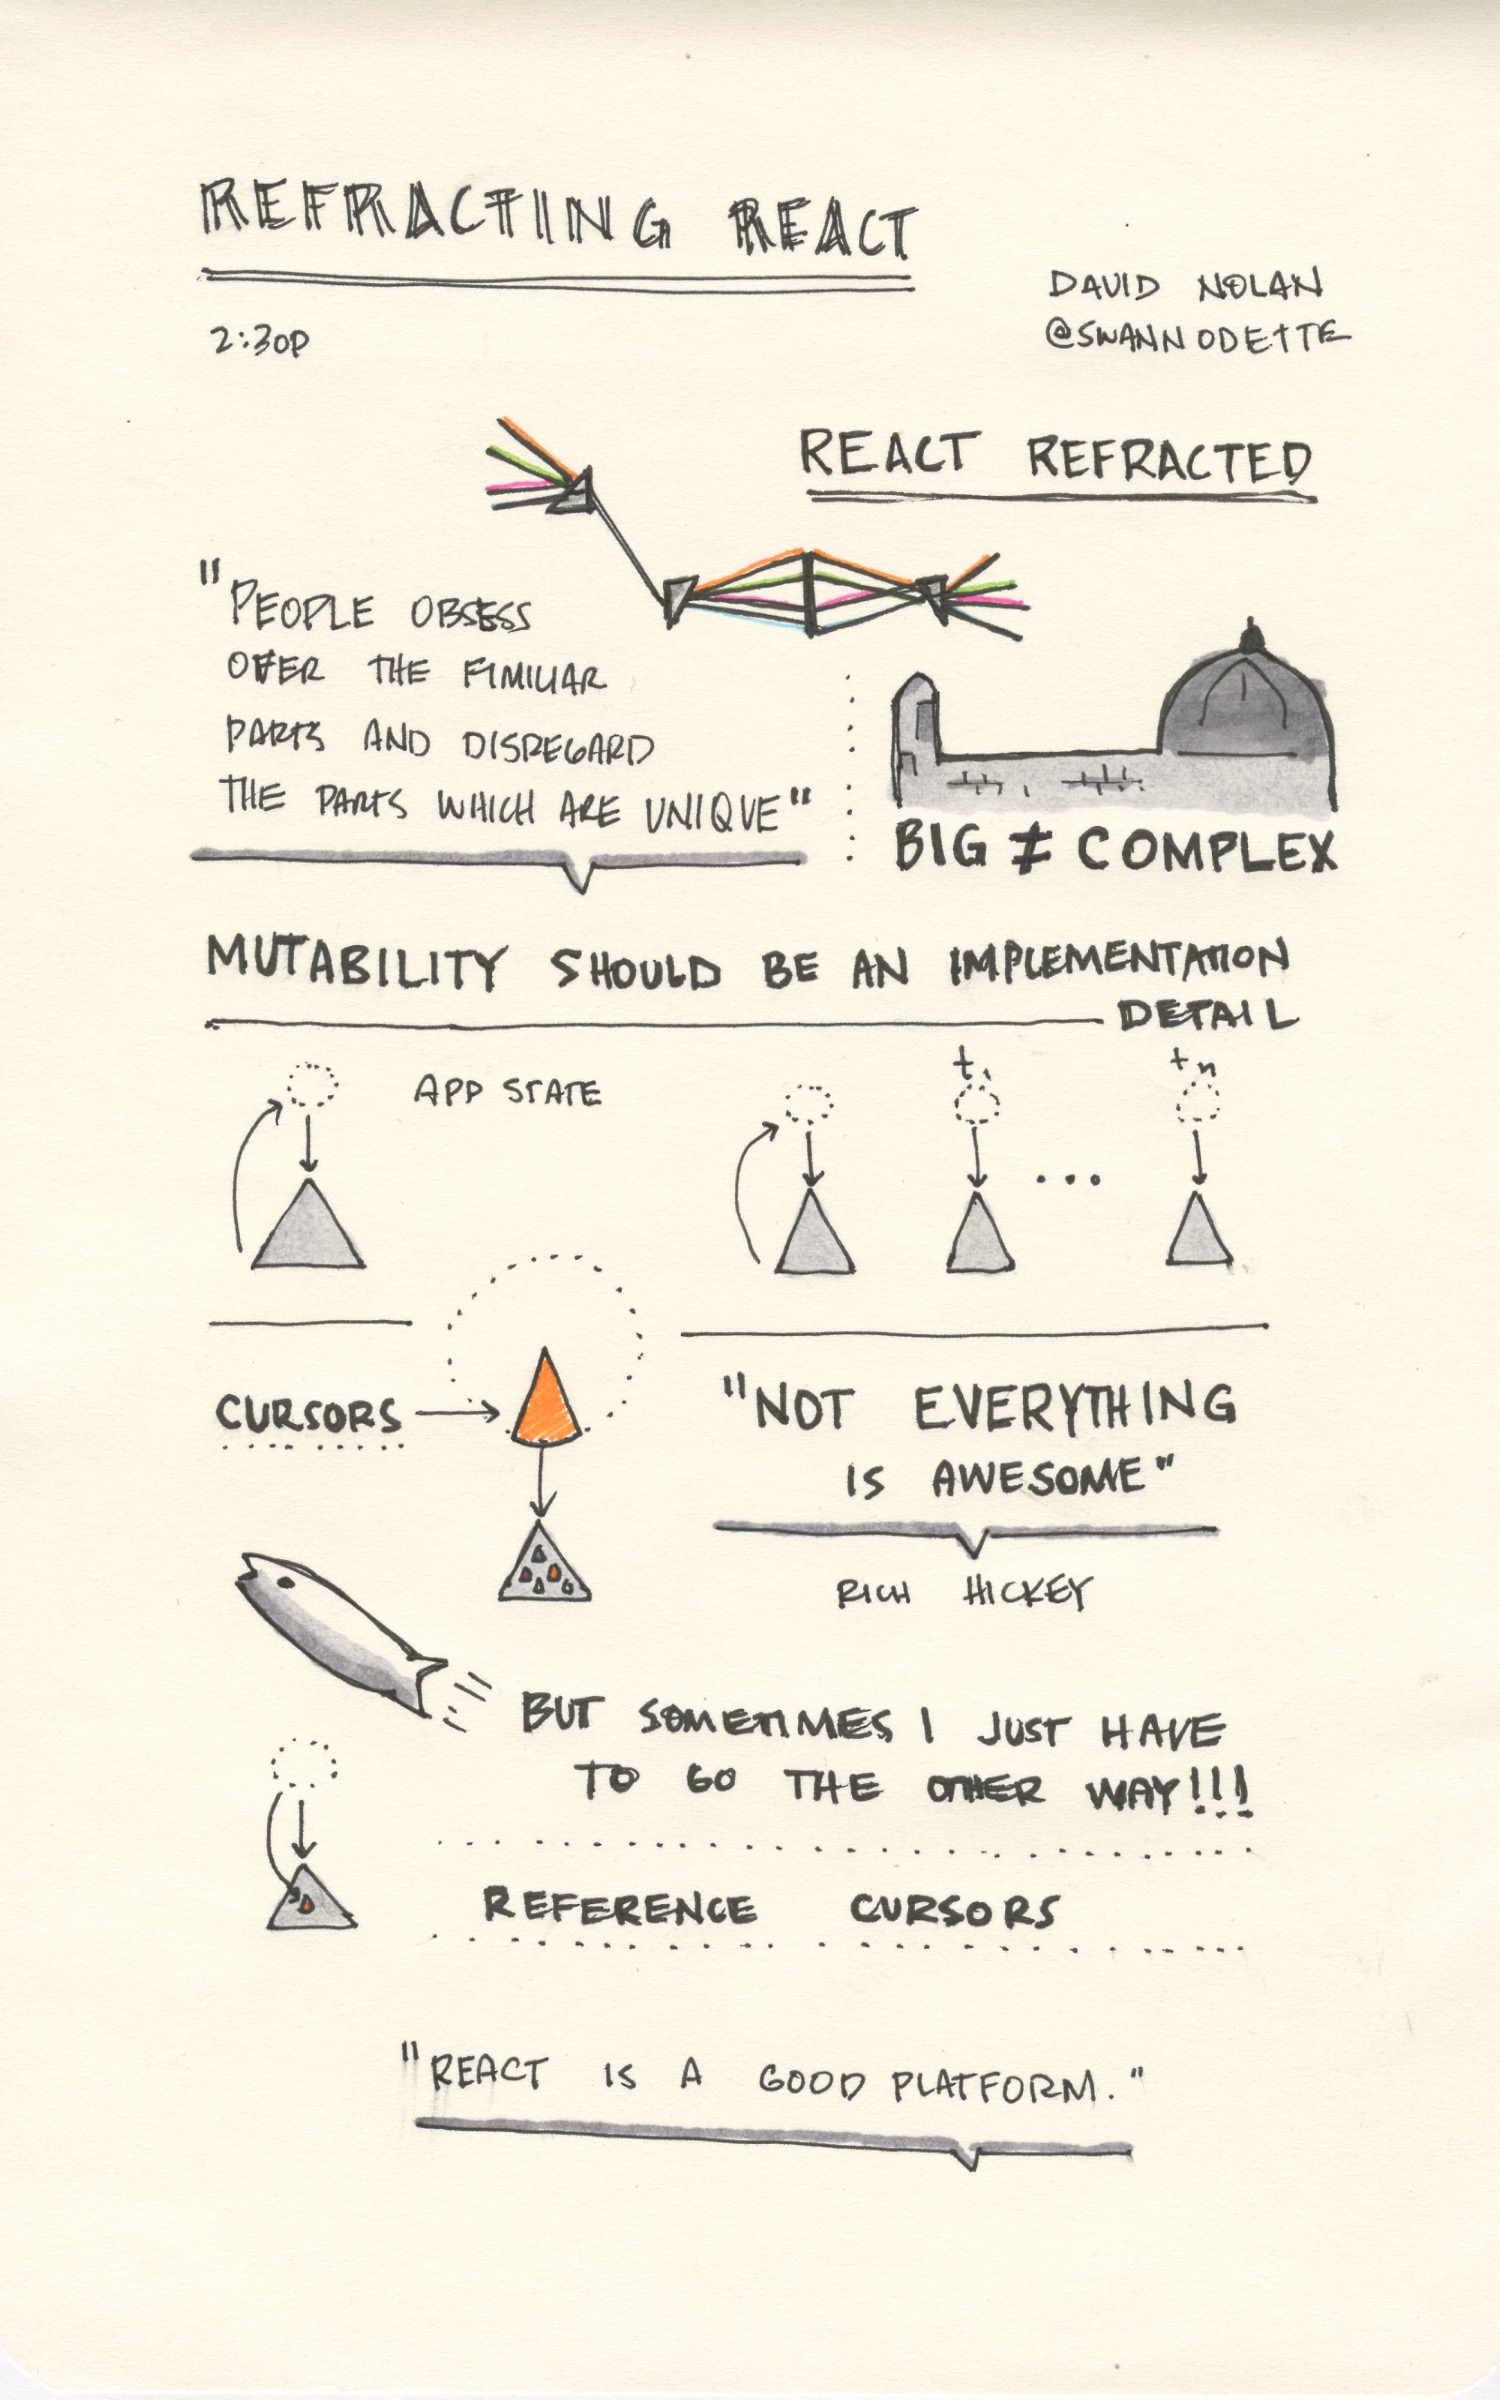 REFRACTING REACT
2:30P
DAVID NOLAN
@SWANNODETTE
REACT REFRACTED
"PEOPLE OBSESS
OVER THE FIMILIAR
PARTS AND DISREGARD
THE PARTS WHICH ARE UNIQUE"
BIG ≠ COMPLEX
MUTABILITY SHOULD BE AN IMPLEMENTATION
DETAIL
APP STATE
t₁
tₙ
CURSORS
"NOT EVERYTHING
IS AWESOME"
RICH HICKEY
BUT SOMETIMES I JUST HAVE
TO GO THE OTHER WAY!!!
REFERENCE CURSORS
"REACT IS A GOOD PLATFORM."